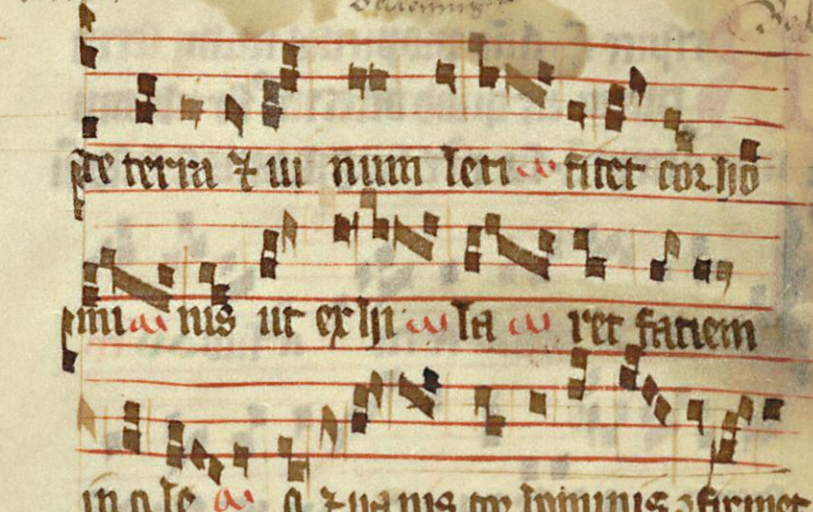 de terra ⁊ ui num leti ficet cor ho
mi nis ut exhi la ret faciem
in o le o ⁊ panis cor hominis ꝯfirmet